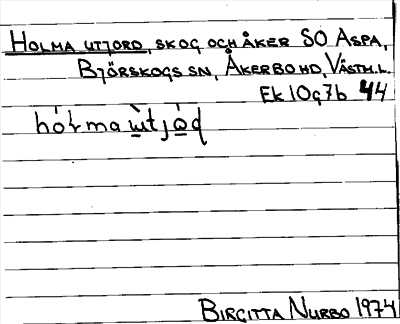 HOLMA UTJORD, SKOG OCH ÅKER SO ASPA,
BJÖRSKOGS SN, ÅKERBO HD, VÄSTM.L.
EK 10g7b 44
BIRGITTA NURBO 1974